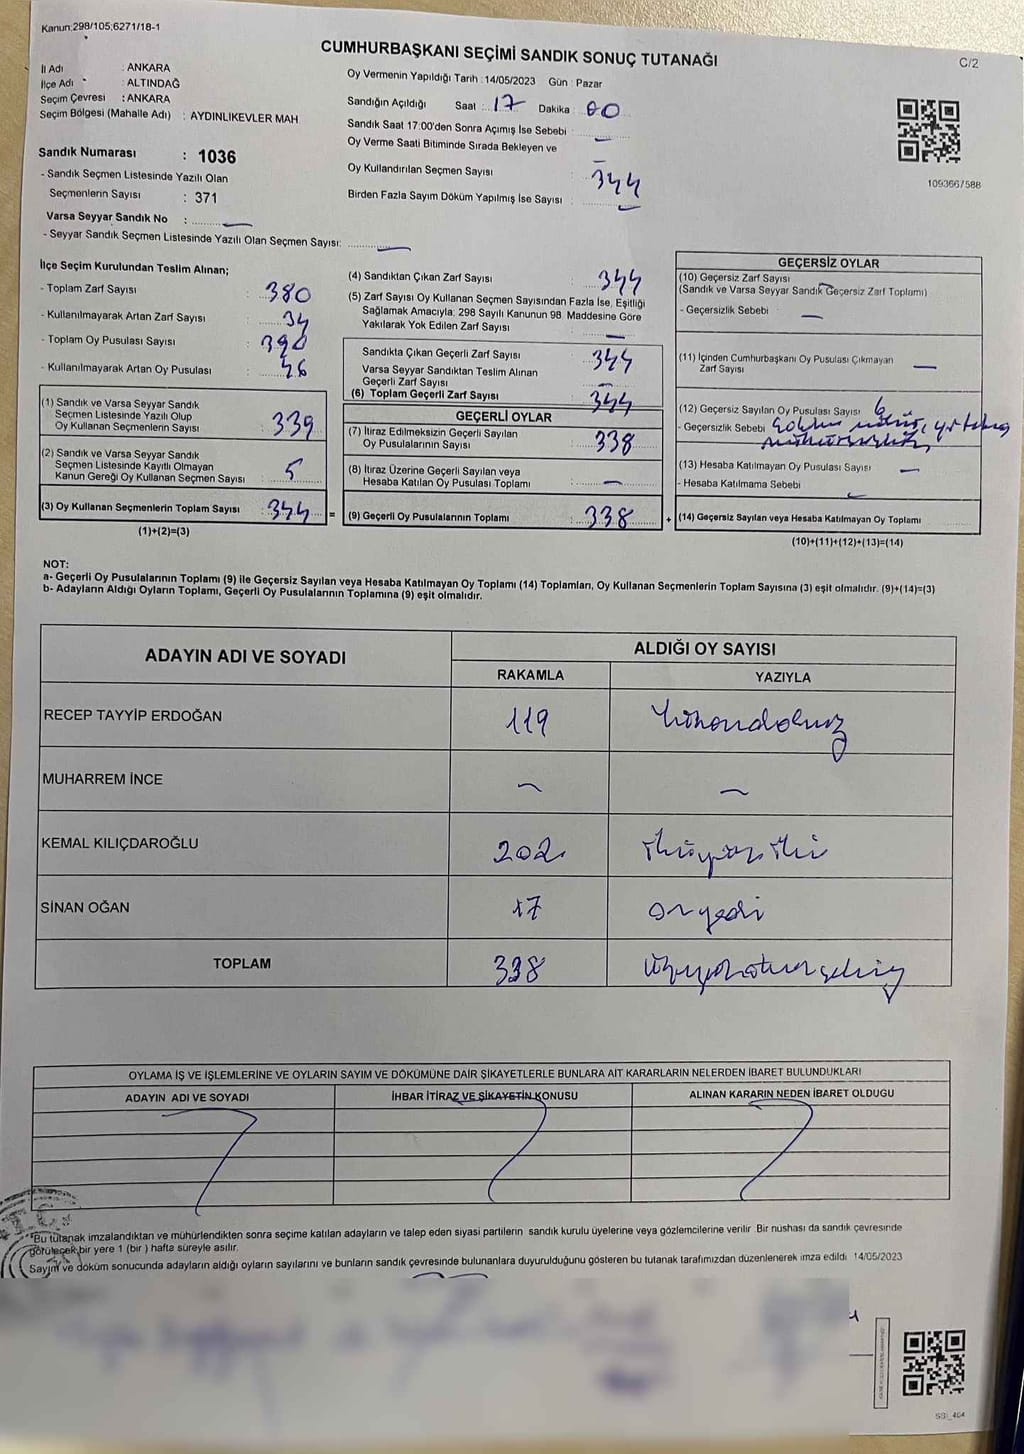 Kanun:298/105;6271/18-1
CUMHURBAŞKANI SEÇİMİ SANDIK SONUÇ TUTANAĞI
C/2
İl Adı : ANKARA
İlçe Adı : ALTINDAĞ
Seçim Çevresi : ANKARA
Seçim Bölgesi (Mahalle Adı) : AYDINLIKEVLER MAH
Sandık Numarası : 1036
- Sandık Seçmen Listesinde Yazılı Olan
Seçmenlerin Sayısı : 371
Varsa Seyyar Sandık No :
- Seyyar Sandık Seçmen Listesinde Yazılı Olan Seçmen Sayısı:
Oy Vermenin Yapıldığı Tarih : 14/05/2023 Gün : Pazar
Sandığın Açıldığı Saat : 17 Dakika : 00
Sandık Saat 17:00'den Sonra Açımış İse Sebebi :
Oy Verme Saati Bitiminde Sırada Bekleyen ve
Oy Kullandırılan Seçmen Sayısı : 344
Birden Fazla Sayım Döküm Yapılmış İse Sayısı :
109366/588
İlçe Seçim Kurulundan Teslim Alınan;
- Toplam Zarf Sayısı : 380
- Kullanılmayarak Artan Zarf Sayısı : 34
- Toplam Oy Pusulası Sayısı : 390
- Kullanılmayarak Artan Oy Pusulası : 46
(1) Sandık ve Varsa Seyyar Sandık
Seçmen Listesinde Yazılı Olup
Oy Kullanan Seçmenlerin Sayısı : 339
(2) Sandık ve Varsa Seyyar Sandık
Seçmen Listesinde Kayıtlı Olmayan
Kanun Gereği Oy Kullanan Seçmen Sayısı : 5
(3) Oy Kullanan Seçmenlerin Toplam Sayısı : 344
(1)+(2)=(3)
(4) Sandıktan Çıkan Zarf Sayısı : 344
(5) Zarf Sayısı Oy Kullanan Seçmen Sayısından Fazla İse, Eşitliği
Sağlamak Amacıyla, 298 Sayılı Kanunun 98. Maddesine Göre
Yakılarak Yok Edilen Zarf Sayısı :
Sandıkta Çıkan Geçerli Zarf Sayısı : 344
Varsa Seyyar Sandıktan Teslim Alınan
Geçerli Zarf Sayısı :
(6) Toplam Geçerli Zarf Sayısı : 344
GEÇERLİ OYLAR
(7) İtiraz Edilmeksizin Geçerli Sayılan
Oy Pusulalarının Sayısı : 338
(8) İtiraz Üzerine Geçerli Sayılan veya
Hesaba Katılan Oy Pusulası Toplamı :
= (9) Geçerli Oy Pusulalarının Toplamı : 338
GEÇERSİZ OYLAR
(10) Geçersiz Zarf Sayısı
(Sandık ve Varsa Seyyar Sandık Geçersiz Zarf Toplamı)
- Geçersizlik Sebebi
(11) İçinden Cumhurbaşkanı Oy Pusulası Çıkmayan
Zarf Sayısı
(12) Geçersiz Sayılan Oy Pusulası Sayısı 6
- Geçersizlik Sebebi
(13) Hesaba Katılmayan Oy Pusulası Sayısı
- Hesaba Katılmama Sebebi
+ (14) Geçersiz Sayılan veya Hesaba Katılmayan Oy Toplamı
(10)+(11)+(12)+(13)=(14)
NOT:
a- Geçerli Oy Pusulalarının Toplamı (9) ile Geçersiz Sayılan veya Hesaba Katılmayan Oy Toplamı (14) Toplamları, Oy Kullanan Seçmenlerin Toplam Sayısına (3) eşit olmalıdır. (9)+(14)=(3)
b- Adayların Aldığı Oyların Toplamı, Geçerli Oy Pusulalarının Toplamına (9) eşit olmalıdır.
ADAYIN ADI VE SOYADI
ALDIĞI OY SAYISI
RAKAMLA YAZIYLA
RECEP TAYYİP ERDOĞAN 119 Yüzondokuz
MUHARREM İNCE
KEMAL KILIÇDAROĞLU 202 ikiyüziki
SİNAN OĞAN 17 onyedi
TOPLAM 338 üçyüzotuzsekiz
OYLAMA İŞ VE İŞLEMLERİNE VE OYLARIN SAYIM VE DÖKÜMÜNE DAİR ŞİKAYETLERLE BUNLARA AİT KARARLARIN NELERDEN İBARET BULUNDUKLARI
ADAYIN ADI VE SOYADI İHBAR İTİRAZ VE ŞİKAYETİN KONUSU ALINAN KARARIN NEDEN İBARET OLDUGU
T.C.
*Bu tutanak imzalandıktan ve mühürlendikten sonra seçime katılan adayların ve talep eden siyasi partilerin sandık kurulu üyelerine veya gözlemcilerine verilir. Bir nushası da sandık çevresinde
görülecek bir yere 1 (bir) hafta süreyle asılır.
Sayım ve döküm sonucunda adayların aldığı oyların sayılarını ve bunların sandık çevresinde bulunanlara duyurulduğunu gösteren bu tutanak tarafımızdan düzenlenerek imza edildi. 14/05/2023